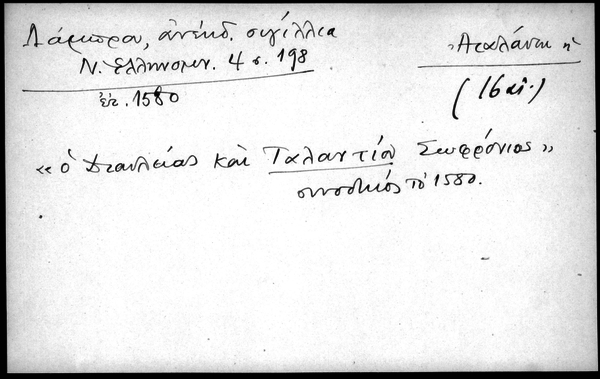 Λάμπρου, ἀνέκδ. σιγίλλια
Ν. Ἑλληνομν. 4 σ. 198
ἐτ. 1580
Ἀταλάντη ἡ
(16 αἰ.)
« ὁ Δαυλείας καὶ Ταλαντίου Σωφρόνιος »
συνοδικός τὸ 1580.